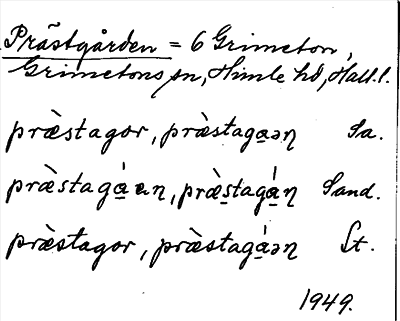 Prästgården = 6 Grimeton,
Grimetons sn, Himle hd, Hall. l.
præ̀stagor, præ̀staga̲ən̥ Sa.
præ̀stagá̲ an̥, præ̀s̲tagá̲n̥ Sand.
præ̀stagor, præ̀stagá̲ən̥ St.
1949.